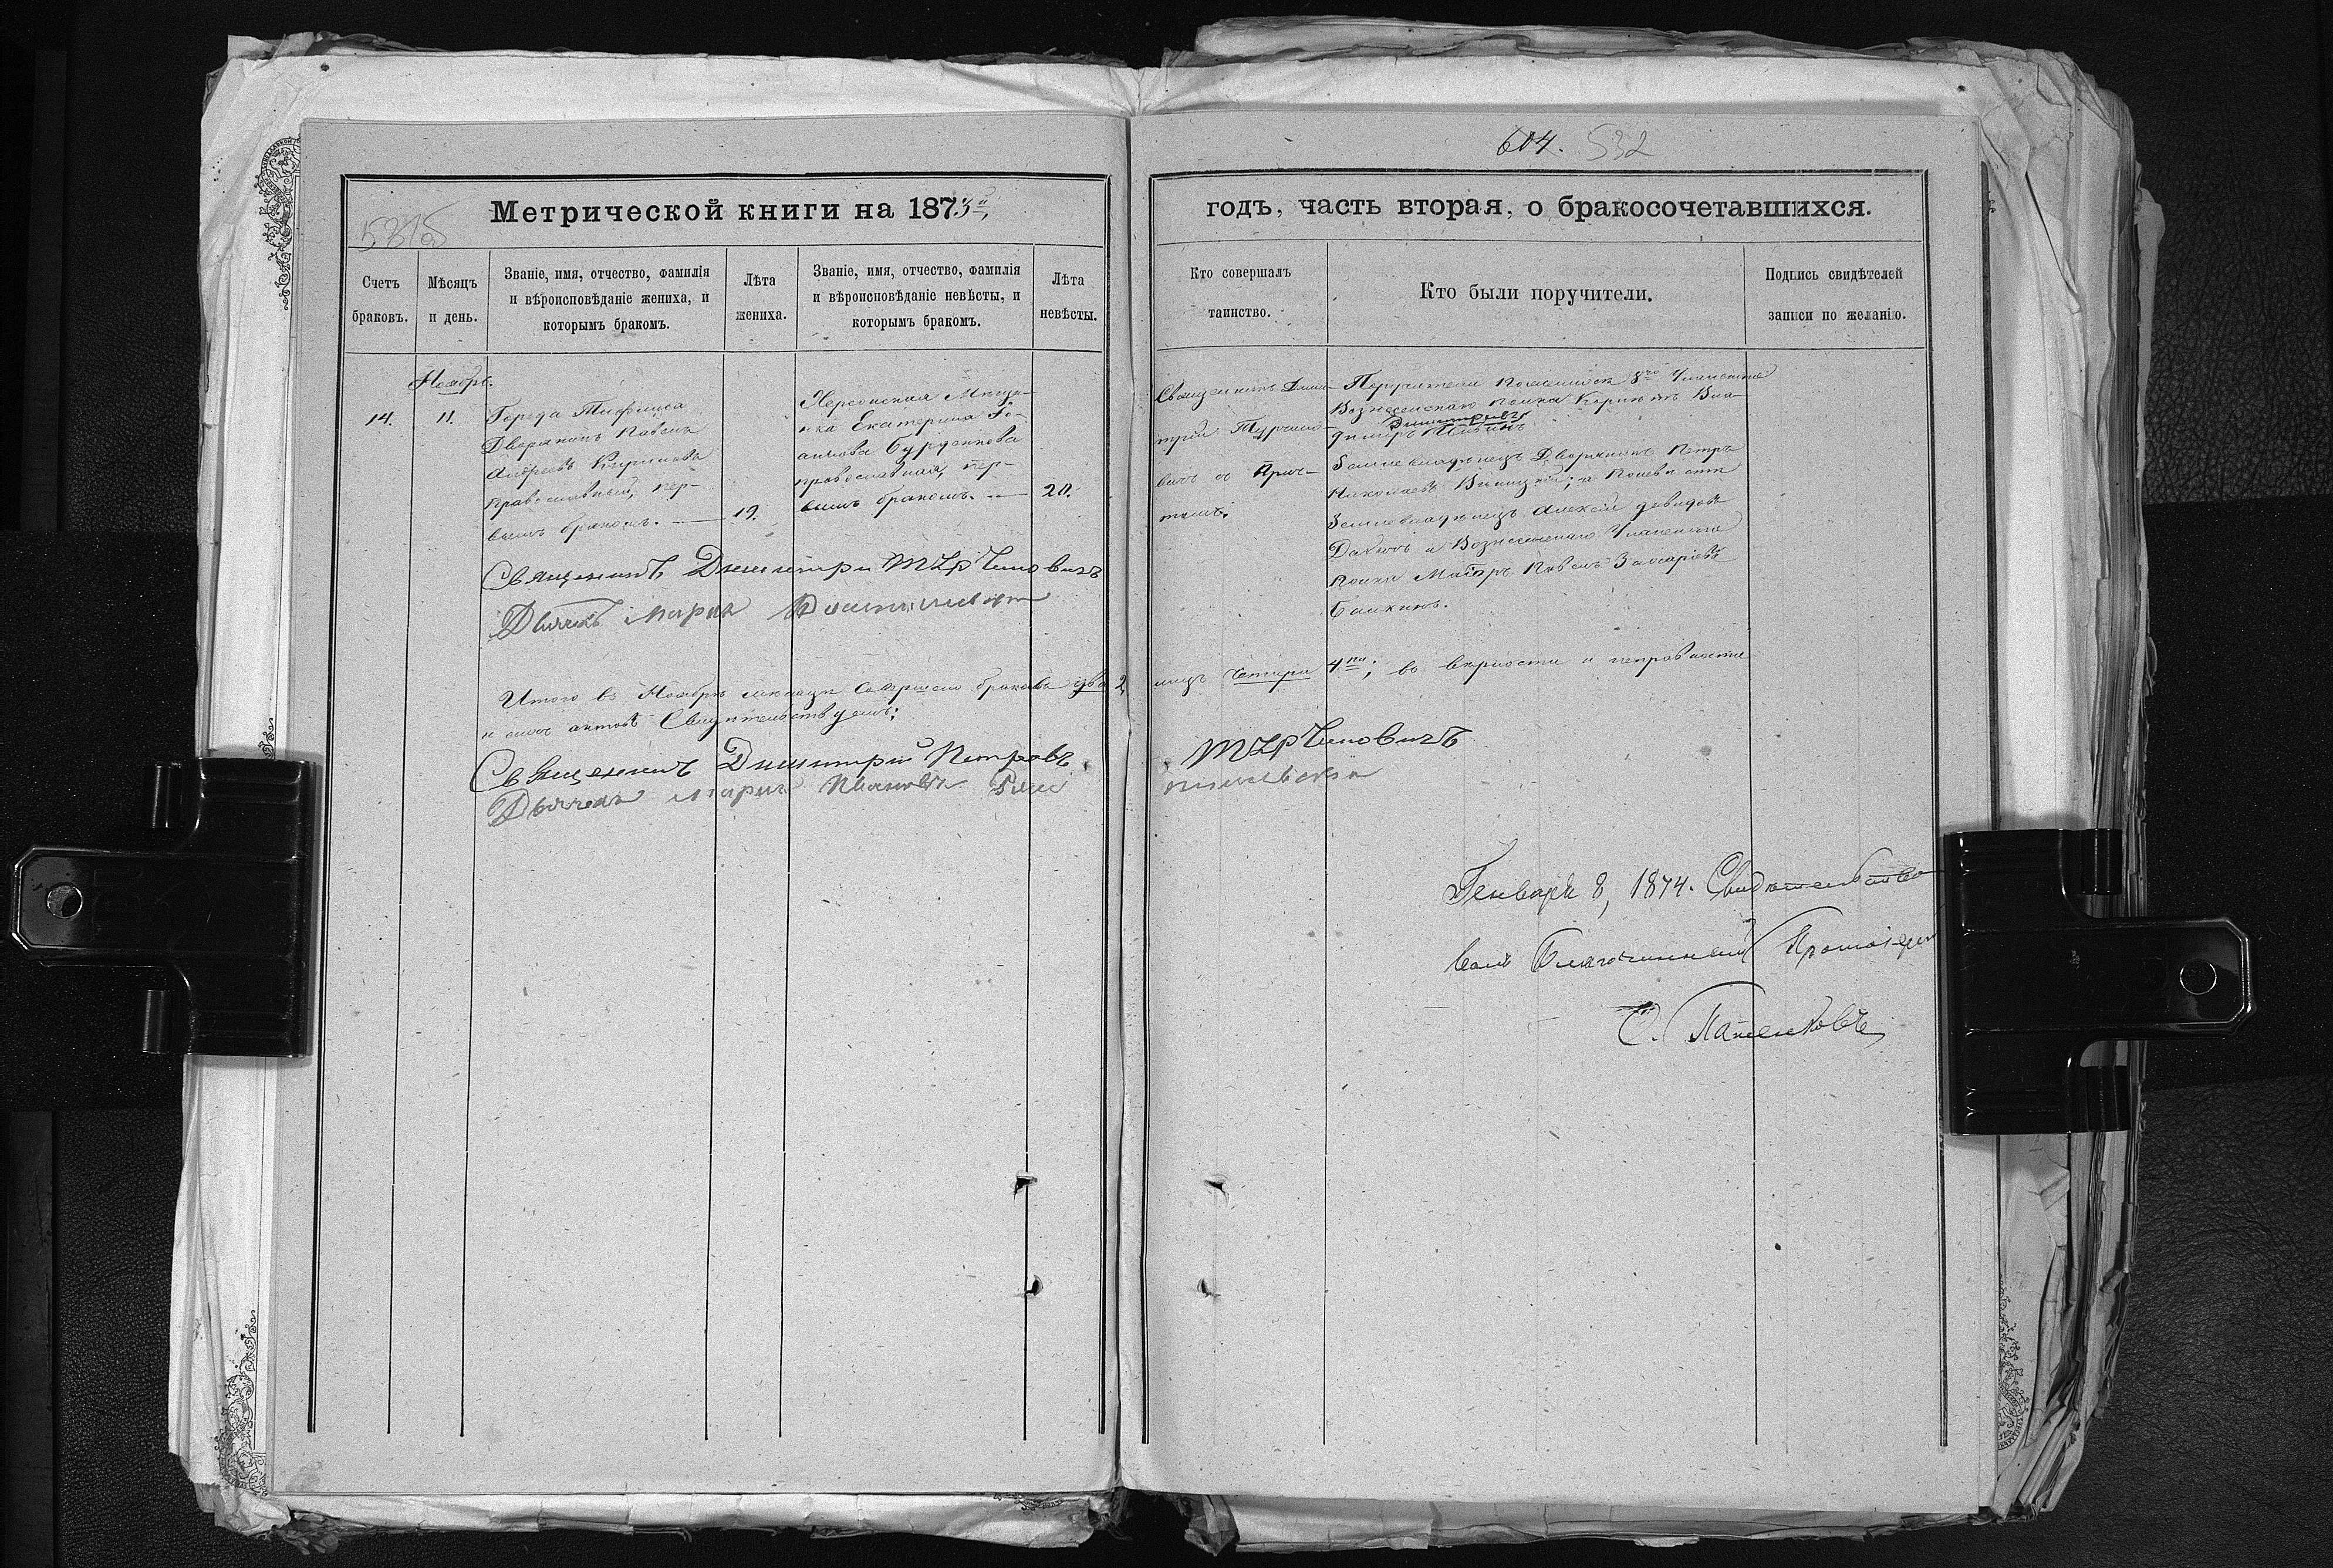 604. 532
Метрической книги на 1873й
годъ, часть вторая, о бракосочетавшихся.
Счетъ браковъ.
Мѣсяцъ и день.
Званіе, имя, отчество, фамилія
и вѣроисповѣданіе жениха, и
которымъ бракомъ.
Лѣта
жениха.
Званіе, имя, отчество, фамилія
и вѣроисповѣданіе невѣсты, и
которымъ бракомъ.
Лѣта
невѣсты.
Кто совершалъ
таинство.
Кто были поручители.
Подпись свидѣтелей
записи по желанію.
Ноябрь.
14.
11.
Города Тифлиса
Дворянинъ Павелъ
Андреевъ
православный, пер-
вымъ бракомъ.
19.
Херсонская Мѣща-
нка Екатерина
Бурденкова
православная, пер-
вымъ бракомъ.
20.
Священникъ Дми-
трій Турчино-
вичъ съ прич-
томъ.
Поручители 8го Уланскаго
Вознесенскаго полка Корнетъ Вла-
Димитріевъ
диміръ
Землевладѣлецъ Дворянинъ Петръ
Николаевъ а по невѣстѣ
Землевладѣлецъ Алексѣй Давидовъ
и Вознесенскаго Уланскаго
полка Маіоръ Павелъ Захаріевъ
Священникъ Димитрій Турчиновичъ
Дьячекъ Марка
Итого въ Ноябрѣ мѣсяцѣ совершено браковъ два 2
лицъ четыре 4ре; въ вѣрности и исправности
и сихъ актовъ Свидѣтельствуемъ:
Священникъ Димитрій Петровъ Турчиновичъ
Дьячекъ Марка Ивановъ
Генваря 8, 1874. Свидѣтельство-
валъ Благочинный Протоіерей
С. Пашенковъ